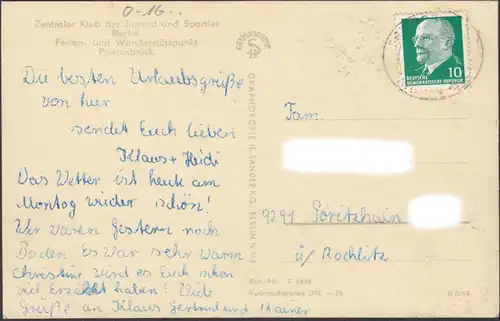 0-16..
Zentraler Klub der Jugend und Sportler
Berlin
Ferien- und Wanderstützpunkt
Prierosbrück
Die besten Urlaubsgrüße
von hier
sendet Euch lieben
Klaus + Heidi
Das Wetter ist heute am
Montag wieder schön!
Wir waren Gestern noch
Baden. Es war sehr warm
Christine wird es Euch schon
viel Erzählt haben! Viele
Grüße an Klaus Gertrud und
GRAPHOKOPIE H. SANDER KG, BERLIN
DEUTSCHE
DEMOKRATISCHE REPUBLIK
10
Fam.
9291 Göritzhain
ü/ Rochlitz